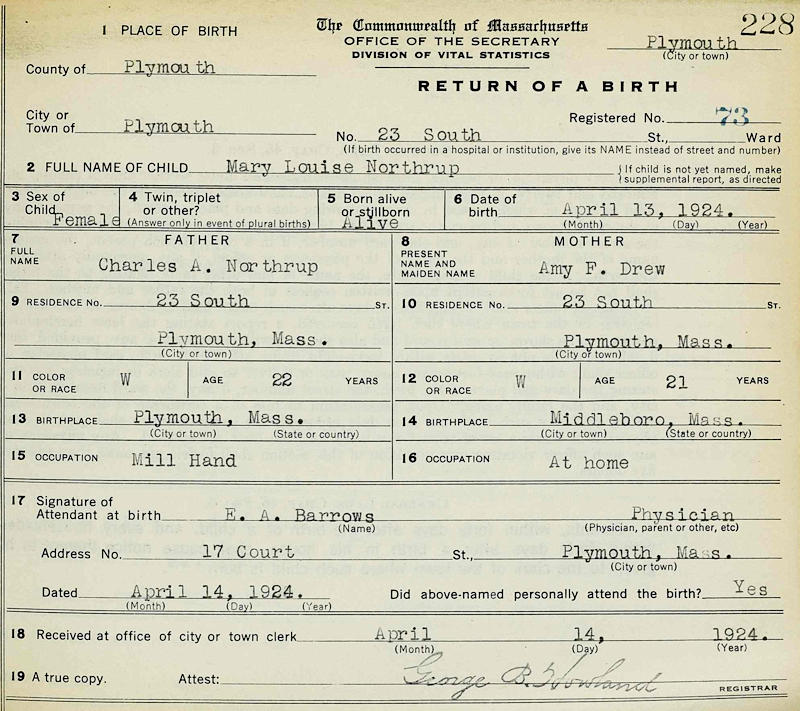 228
1 PLACE OF BIRTH
The Commonwealth of Massachusetts
OFFICE OF THE SECRETARY
DIVISION OF VITAL STATISTICS
Plymouth
(City or town)
County of Plymouth
RETURN OF A BIRTH
City or
Town of Plymouth
Registered No. 73
No. 23 South St., Ward
(If birth occurred in a hospital or institution, give its NAME instead of street and number)
2 FULL NAME OF CHILD Mary Louise Northrup
{ If child is not yet named, make
{ supplemental report, as directed
3 Sex of
Child Female
4 Twin, triplet
or other?
(Answer only in event of plural births)
5 Born alive
or stillborn
Alive
6 Date of
birth April 13, 1924.
(Month) (Day) (Year)
7 FATHER
FULL
NAME Charles A. Northrup
8 MOTHER
PRESENT
NAME AND
MAIDEN NAME Amy F. Drew
9 RESIDENCE No. 23 South ST.
Plymouth, Mass.
(City or town)
10 RESIDENCE No. 23 South ST.
Plymouth, Mass.
(City or town)
11 COLOR
OR RACE W AGE 22 YEARS
12 COLOR
OR RACE W AGE 21 YEARS
13 BIRTHPLACE Plymouth, Mass.
(City or town) (State or country)
14 BIRTHPLACE Middleboro, Mass.
(City or town) (State or country)
15 OCCUPATION Mill Hand
16 OCCUPATION At home
17 Signature of
Attendant at birth E. A. Barrows Physician
(Name) (Physician, parent or other, etc)
Address No. 17 Court St., Plymouth, Mass.
(City or town)
Dated April 14, 1924. Did above-named personally attend the birth? Yes
(Month) (Day) (Year)
18 Received at office of city or town clerk April 14, 1924.
(Month) (Day) (Year)
19 A true copy. Attest: George B. Howland REGISTRAR